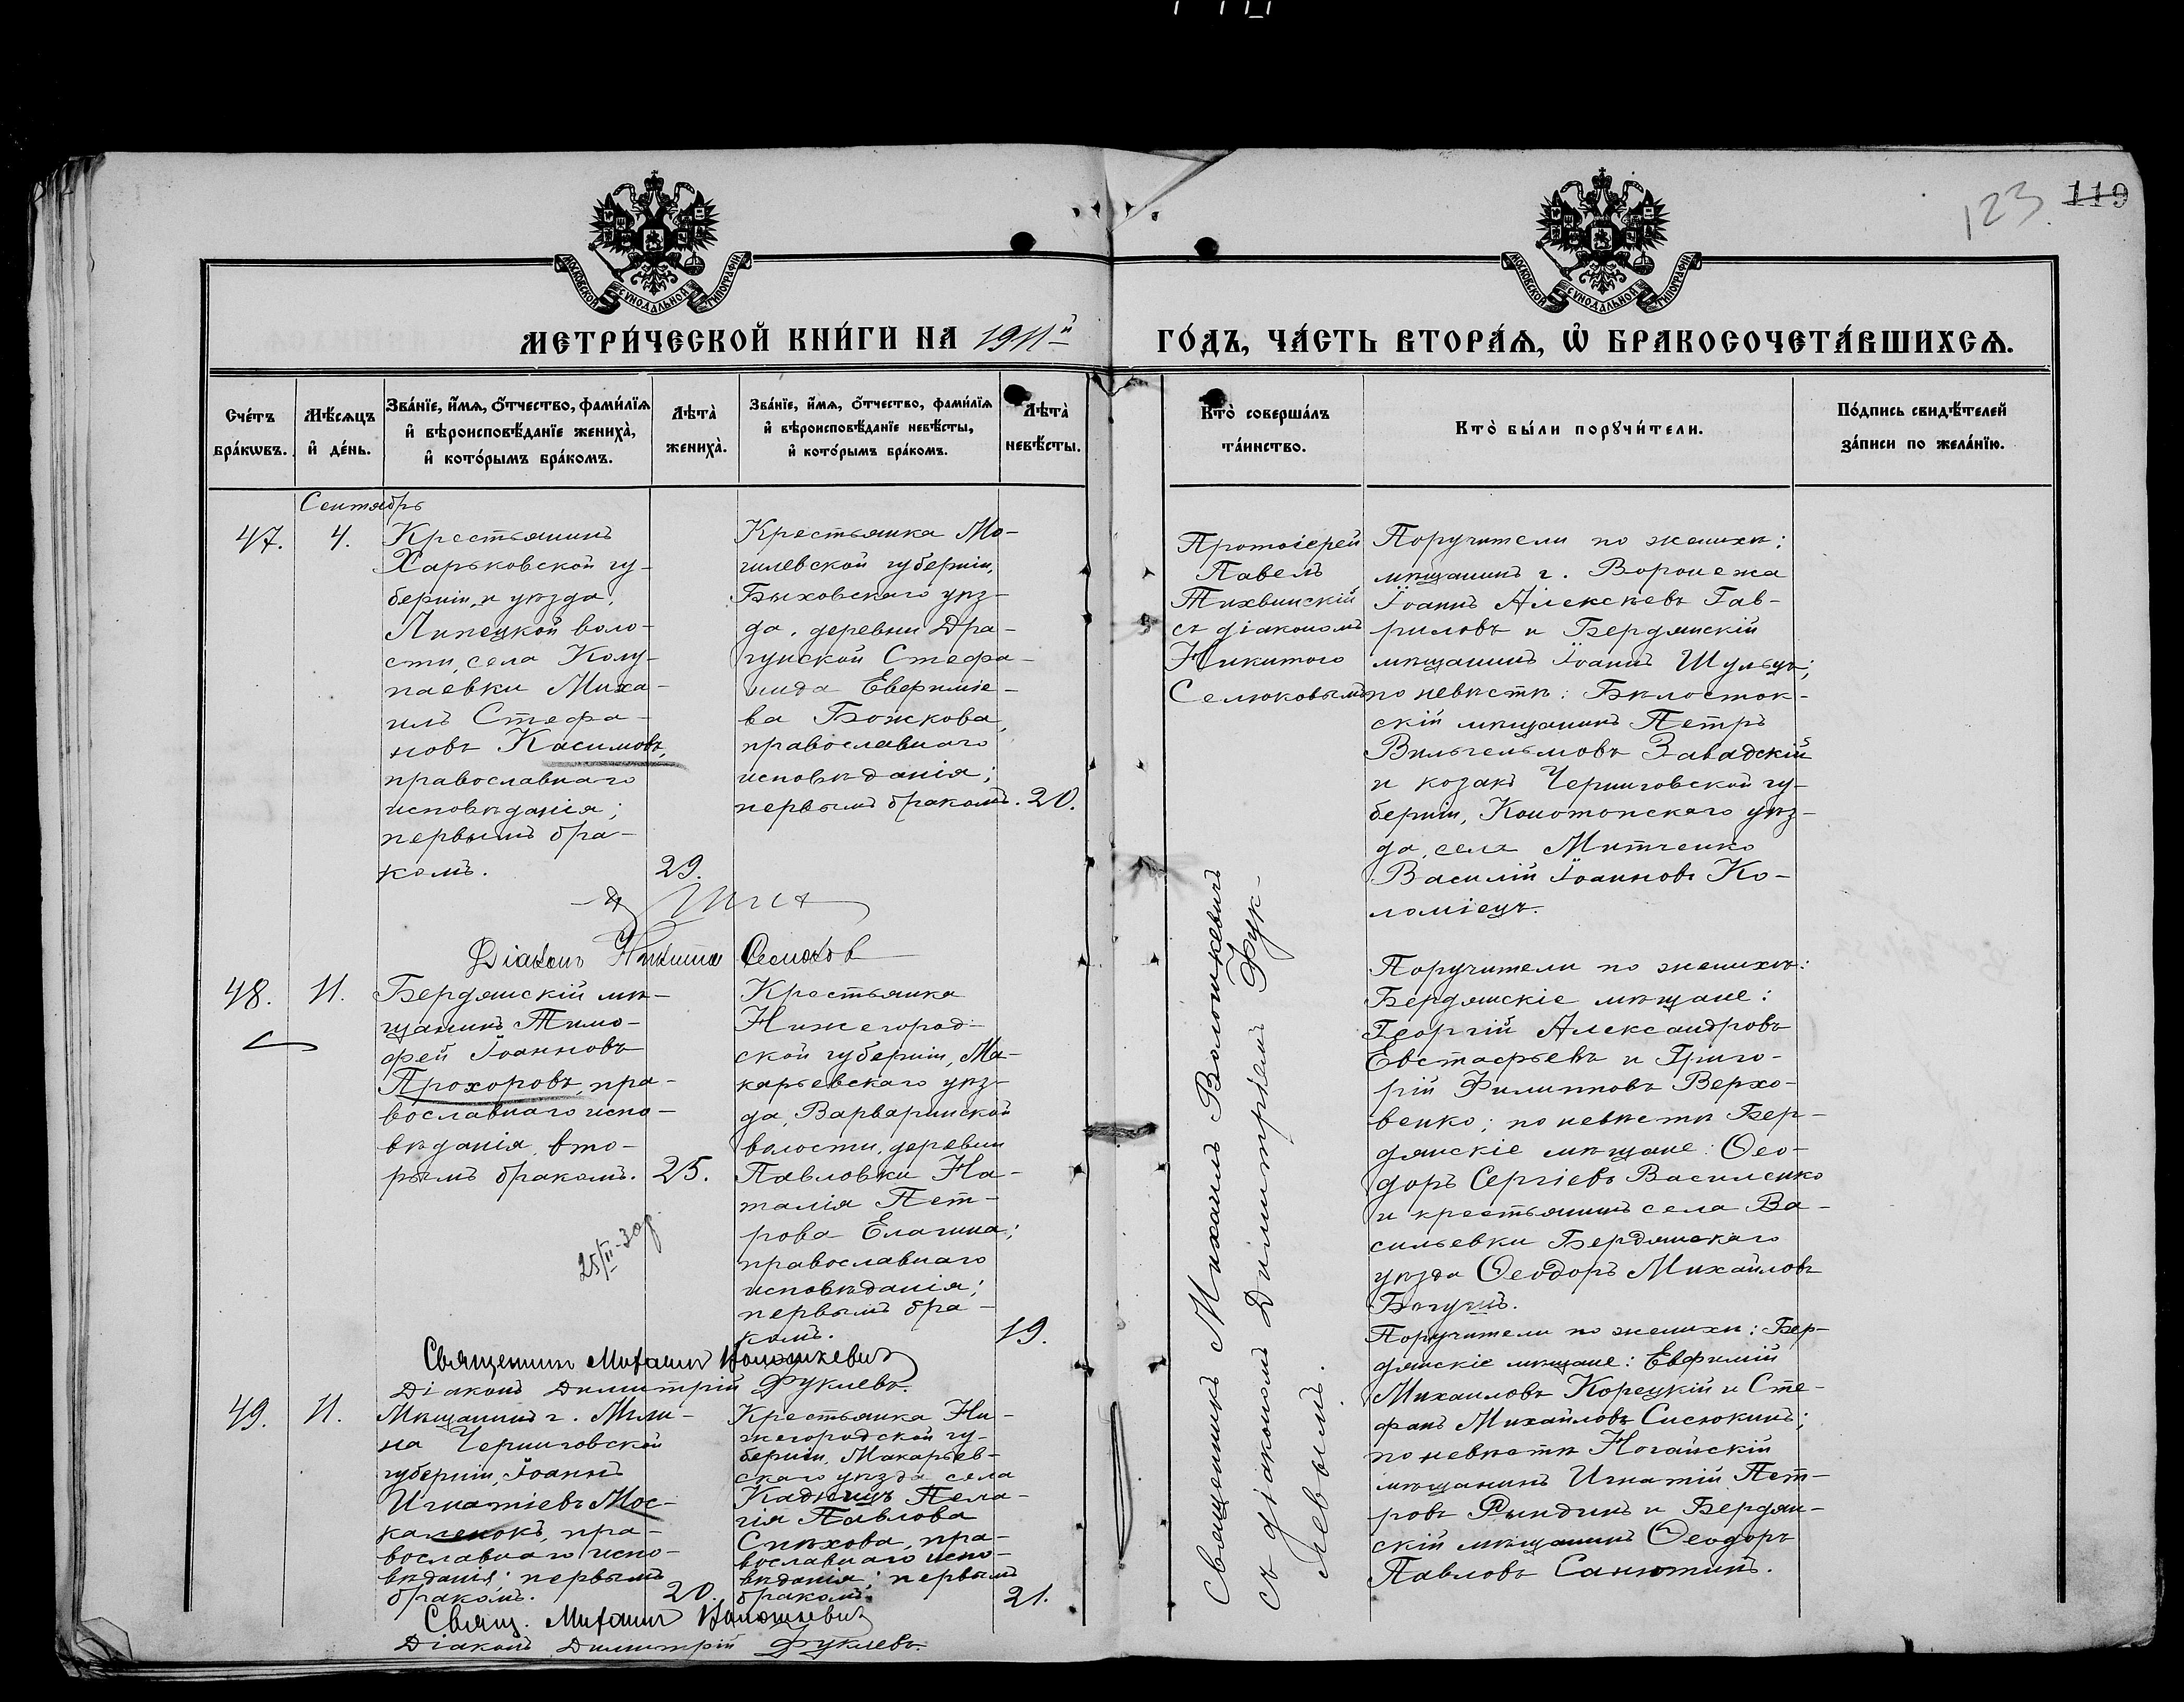 123.
119
МОСКОВСКОЙ СѴНОДАЛЬНОЙ ТИПОГРАФІИ
МОСКОВСКОЙ СѴНОДАЛЬНОЙ ТИПОГРАФІИ
МЕТРИ́ЧЕСКОЙ КНИ́ГИ НА 1911й
ГО́ДЪ, ЧА́СТЬ ВТОРА́Ѧ, Ѡ҆ БРАКОСОЧЕТА́ВШИХСѦ.
Счéтъ
брáкѡвъ.
Мѣ́сѧцъ
и҆ дéнь.
Звáнїе, и҆́мѧ, ѻ҆́тчество, фами́лїѧ
и҆ вѣроисповѣ́данїе женихà,
и҆ кото́рымъ брáкомъ.
Лѣтà
женихà.
Звáнїе, и҆́мѧ, ѻ҆́тчество, фами́лїѧ
и҆ вѣроисповѣ́данїе невѣ́сты,
и҆ кото́рымъ брáкомъ.
Лѣтà
невѣ́сты.
Ктò совершáлъ
тáинство.
Ктò бы́ли порꙋчи́тели.
По́дпись свидѣ́телей
зáписи по желáнїю.
Сентябрь
47.
4.
Крестьянинъ
Харьковской гу-
берніи и уѣзда,
Липецкой воло-
сти, села Колу-
паевки Миха-
илъ Стефа-
новъ Касимовъ,
православнаго
исповѣданія;
первымъ бра-
комъ.
29.
Крестьянка Мо-
гилевской губерніи,
Быховскаго уѣз-
да, деревни Дра-
гунской Стефа-
нида Евфиміе-
ва Божкова,
православнаго
исповѣданія;
первымъ бракомъ.
20.
Протоіерей
Павелъ
Тихвинскій
съ діакономъ
Никитою
Селюковымъ
Поручители по женихѣ:
мѣщанинъ г. Воронежа
Іоаннъ Алексѣевъ Гав-
риловъ и Бердянскій
мѣщанинъ Іоаннъ Шульцъ;
по невѣстѣ: Бѣлосток-
скій мѣщанинъ Петръ
Вильгельмовъ Завадскій
и козакъ Черниговской гу-
берніи, Конотопскаго уѣз-
да, села Митченко
Василій Іоанновъ Ко-
ломіецъ.
Діаконъ Никита Селюков
48.
11.
Бердянскій мѣ-
щанинъ Тимо-
фей Іоанновъ
Прохоровъ, пра-
вославнаго испо-
вѣданія, вто-
рымъ бракомъ.
25.
Крестьянка
Нижегород-
ской губерніи, Ма-
карьевскаго уѣз-
да, Варваринской
волости, деревни
Павловки На-
талія Пет-
рова Елагина;
православнаго
исповѣданія;
первымъ бра-
комъ.
19.
Священникъ Михаилъ Волошкевичъ
съ діакономъ Димитріемъ Фук-
левымъ.
Поручители по женихѣ:
Бердянскіе мѣщане:
Георгій Александровъ
Евстафьевъ и Григо-
рій Филипповъ Верхо-
венко; по невѣстѣ Бер-
дянскіе мѣщане: Ѳео-
доръ Сергіевъ Василенко
и крестьянинъ села Ва-
сильевки Бердянскаго
уѣзда Ѳеодоръ Михайловъ
Богунъ.
Священникъ Михаилъ Волошкевичъ
Діаконъ Димитрій Фуклевъ.
49.
11.
Мѣщанинъ г. Мгли-
на Черниговской
губерніи, Іоаннъ
Игнатіевъ Мос-
каленокъ, пра-
вославнаго испо-
вѣданія; первымъ
бракомъ.
20.
Крестьянка Ни-
жегородской гу-
берніи, Макарьев-
скаго уѣзда села
Кадницъ Пела-
гія Павлова
Спѣхова, пра-
вославнаго испо-
вѣданія; первымъ
бракомъ.
21.
Поручители по женихѣ: Бер-
дянскіе мѣщане: Евфимій
Михаиловъ Корецкій и Сте-
фанъ Михайловъ Сисюкинъ;
по невѣстѣ Ногайскій
мѣщанинъ Игнатій Пет-
ровъ Рындинъ и Бердян-
скій мѣщанинъ Ѳеодоръ
Павловъ Санютинъ.
Свящ. Михаилъ Волошкевичъ
Діаконъ Димитрій Фуклевъ.